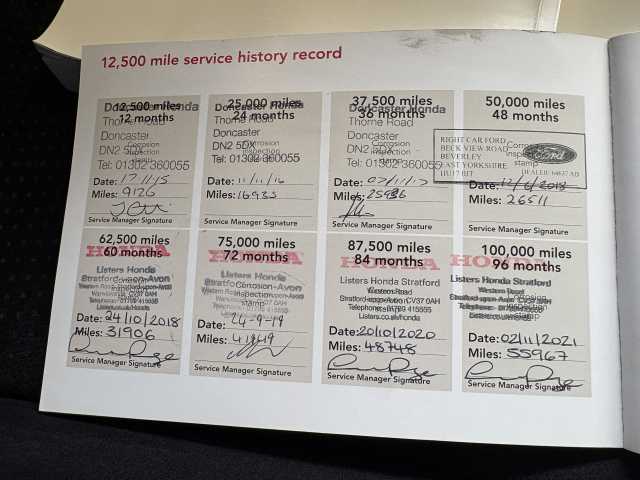 12,500 mile service history record
12,500 miles
12 months
Doncaster Honda
Thorne Road
Doncaster
DN2 5DX
Tel: 01302 360055
Corrosion
inspection
stamp
Date: 17.11.15
Miles: 9126
Service Manager Signature
25,000 miles
24 months
Doncaster Honda
Thorne Road
Doncaster
DN2 5DX
Tel: 01302 360055
Corrosion
inspection
stamp
Date: 11/11/16
Miles: 16933
Service Manager Signature
37,500 miles
36 months
Doncaster Honda
Thorne Road
Doncaster
DN2 5DX
Tel: 01302 360055
Corrosion
inspection
stamp
Date: 07/11/17
Miles:
Service Manager Signature
50,000 miles
48 months
RIGHT CAR FORD
BECK VIEW ROAD
BEVERLEY
EAST YORKSHIRE
HU17 0JT
Ford
DEALER 64637 AD
Corrosion
inspection
stamp
Date: 12/6/2018
Miles: 26511
Service Manager Signature
62,500 miles
60 months
HONDA
Listers Honda
Stratford-upon-Avon
Date: 24/10/2018
Miles: 31906
Service Manager Signature
75,000 miles
72 months
HONDA
Listers Honda
Stratford-upon-Avon
Corrosion
inspection
stamp
Date: 24-9-19
Miles:
Service Manager Signature
87,500 miles
84 months
HONDA
Listers Honda Stratford
Western Road
Stratford-upon-Avon CV37 0AH
Telephone: 01789 415555
Listers.co.uk/honda
Date: 20/10/2020
Miles: 48748
Service Manager Signature
100,000 miles
96 months
HONDA
Listers Honda Stratford
Western Road
Date: 02/11/2021
Miles: 55967
Service Manager Signature